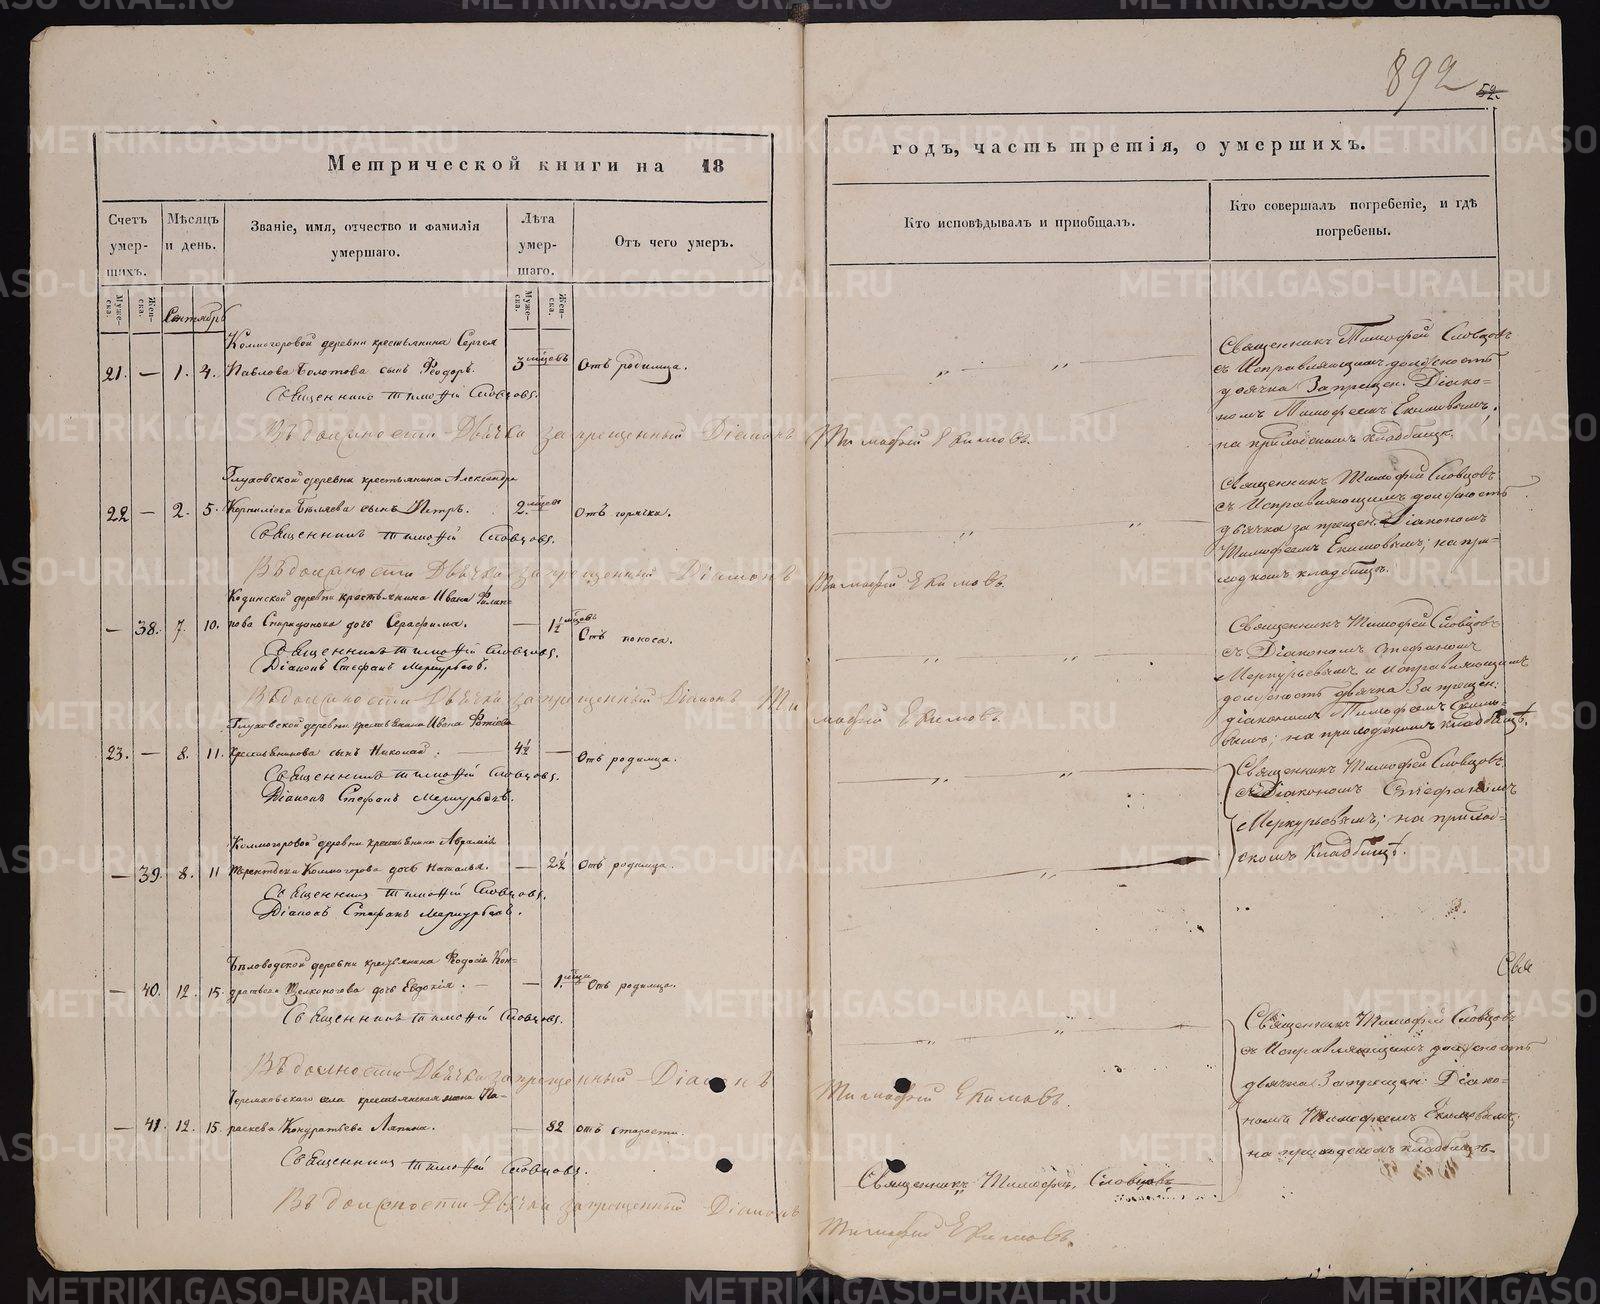 892
52.
Метрической книги на 18
годъ, часть третія, о умершихъ.
Счетъ умер- шихъ.
Мѣсяцъ и день.
Званіе, имя, отчество и фамилія умершаго.
Лѣта умер- шаго.
Отъ чего умеръ.
Кто исповѣдывалъ и пріобщалъ.
Кто совершалъ погребеніе, и гдѣ погребены.
Муже- ска.
Жен- ска.
Муже- ска.
Жен- ска.
Сентябрь
Колмогоровой деревни крестьянина Сергея
21. — 1. 4. Павлова Болотова сынъ Феодоръ. 3 мѣсяцовъ Отъ родимца.
Священникъ Тимофей Словцовъ.
Въ должности Дьячка запрещенный Діаконъ Тимофей Екимовъ.
Священникъ Тимофей Словцовъ
съ Исправляющимъ должность
дьячка Запрещен. Діако-
номъ Тимофеемъ Екимовымъ,
на приходскомъ кладбищѣ.
Глуховской деревни крестьянина Александра
22 — 2. 5. Корнилова Бѣляева сынъ Петръ. 2. мѣсяц Отъ горячки.
Священникъ Тимофей Словцовъ.
Въ должности Дьячка запрещенный Діаконъ Тимофей Екимовъ.
Священникъ Тимофей Словцовъ
съ Исправляющимъ должность
дьячка запрещен. Діакономъ
Тимофеемъ Екимовымъ; на при-
ходскомъ кладбищѣ.
Кодинской деревни крестьянина Ивана Филип-
— 38. 7. 10. пова Спиридонова дочь Серафима. — 1½ мѣсяц Отъ поноса.
Священникъ Тимофей Словцовъ.
Діаконъ Стефанъ Меркурьевъ.
Въ должности Дьячка запрещенный Діаконъ Тимофей Екимовъ.
Священникъ Тимофей Словцовъ
съ Діакономъ Стефаномъ
Меркурьевымъ и исправляющимъ
должность дьячка Запрещен:
діакономъ Тимофеемъ Екимо-
вымъ; на приходскомъ кладбищѣ.
Глуховской деревни крестьянина Ивана
23. — 8. 11. сынъ Николай. — 4½ — Отъ родимца.
Священникъ Тимофей Словцовъ.
Діаконъ Стефанъ Меркурьевъ.
Священникъ Тимофей Словцовъ
съ Діакономъ Стефаномъ
Меркурьевымъ; на приход-
скомъ кладбищѣ.
Колмогоровой деревни крестьянина Авраамія
— 39. 8. 11 Терентьева Колмогорова дочь Наталья. — 2½ Отъ родимца.
Священникъ Тимофей Словцовъ.
Діаконъ Стефанъ Меркурьевъ.
деревни крестьянина Федосія Кон-
— 40. 12. 15. дратьева Щелконогова дочь Евдокія. — 1. мѣсяц Отъ родимца.
Священникъ Тимофей Словцовъ.
Въ должности Дьячка запрещенный Діаконъ Тимофей Екимовъ.
Свя
Священникъ Тимофей Словцовъ
съ Исправляющимъ должность
дьячка Запрещен: Діако-
номъ Тимофеемъ Екимовымъ;
на приходскомъ кладбищѣ.
села крестьянская жена Па-
— 41. 12. 15. раскева Кондратьева Лапина. — 82 отъ старости.
Священникъ Тимофей Словцовъ.
Священникъ Тимофей Словцовъ
Въ должности Дьячка запрещенный Діаконъ Тимофей Екимовъ.
METRIKI.GASO-URAL.RU